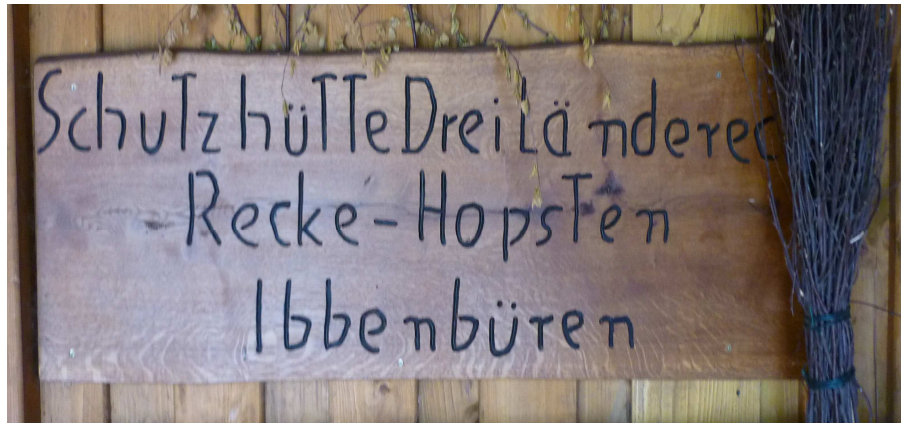 Schutzhütte Dreiländerec
Recke-Hopsten
Ibbenbüren